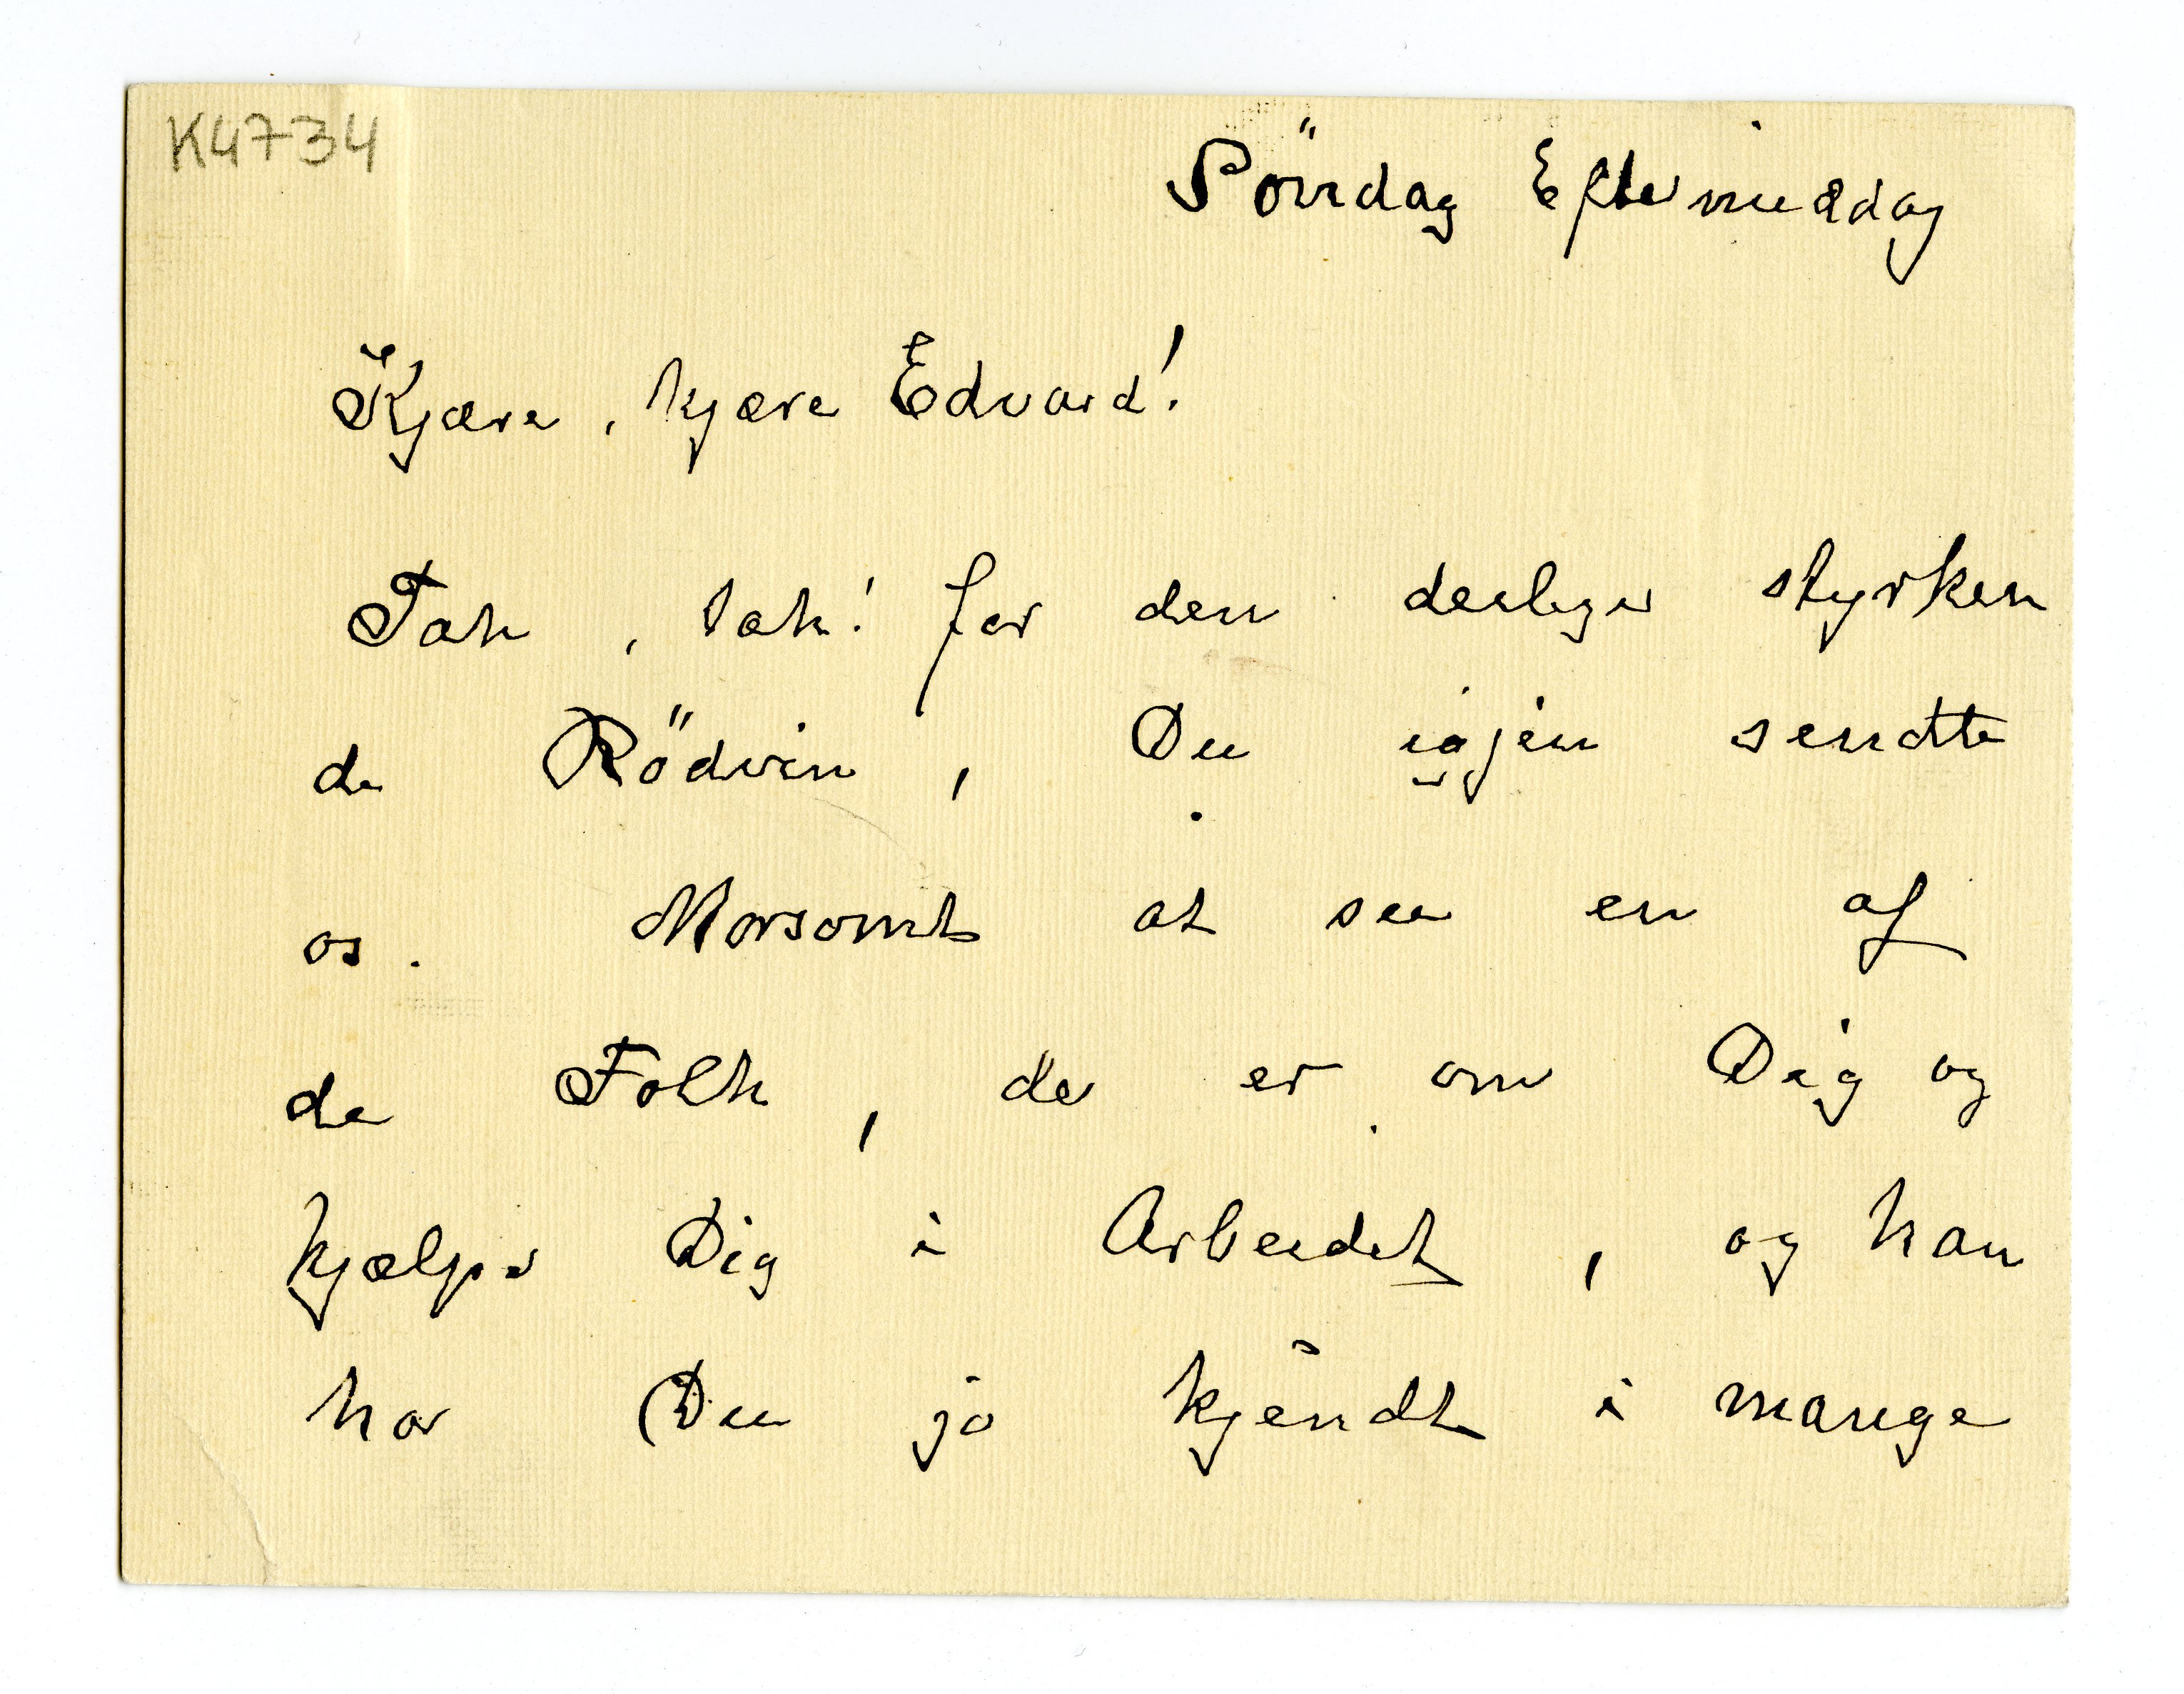 K4734
Söndag Eftermiddag
Kjære, kjære Edvard!
Tak, tak! for den deilige styrken
de Rödvin, Du igjen sendte
os. Morsomt at see en af
de Folk, der er om Dig og
hjælper Dig i Arbeidet, og han
har Du jo kjendt i mange